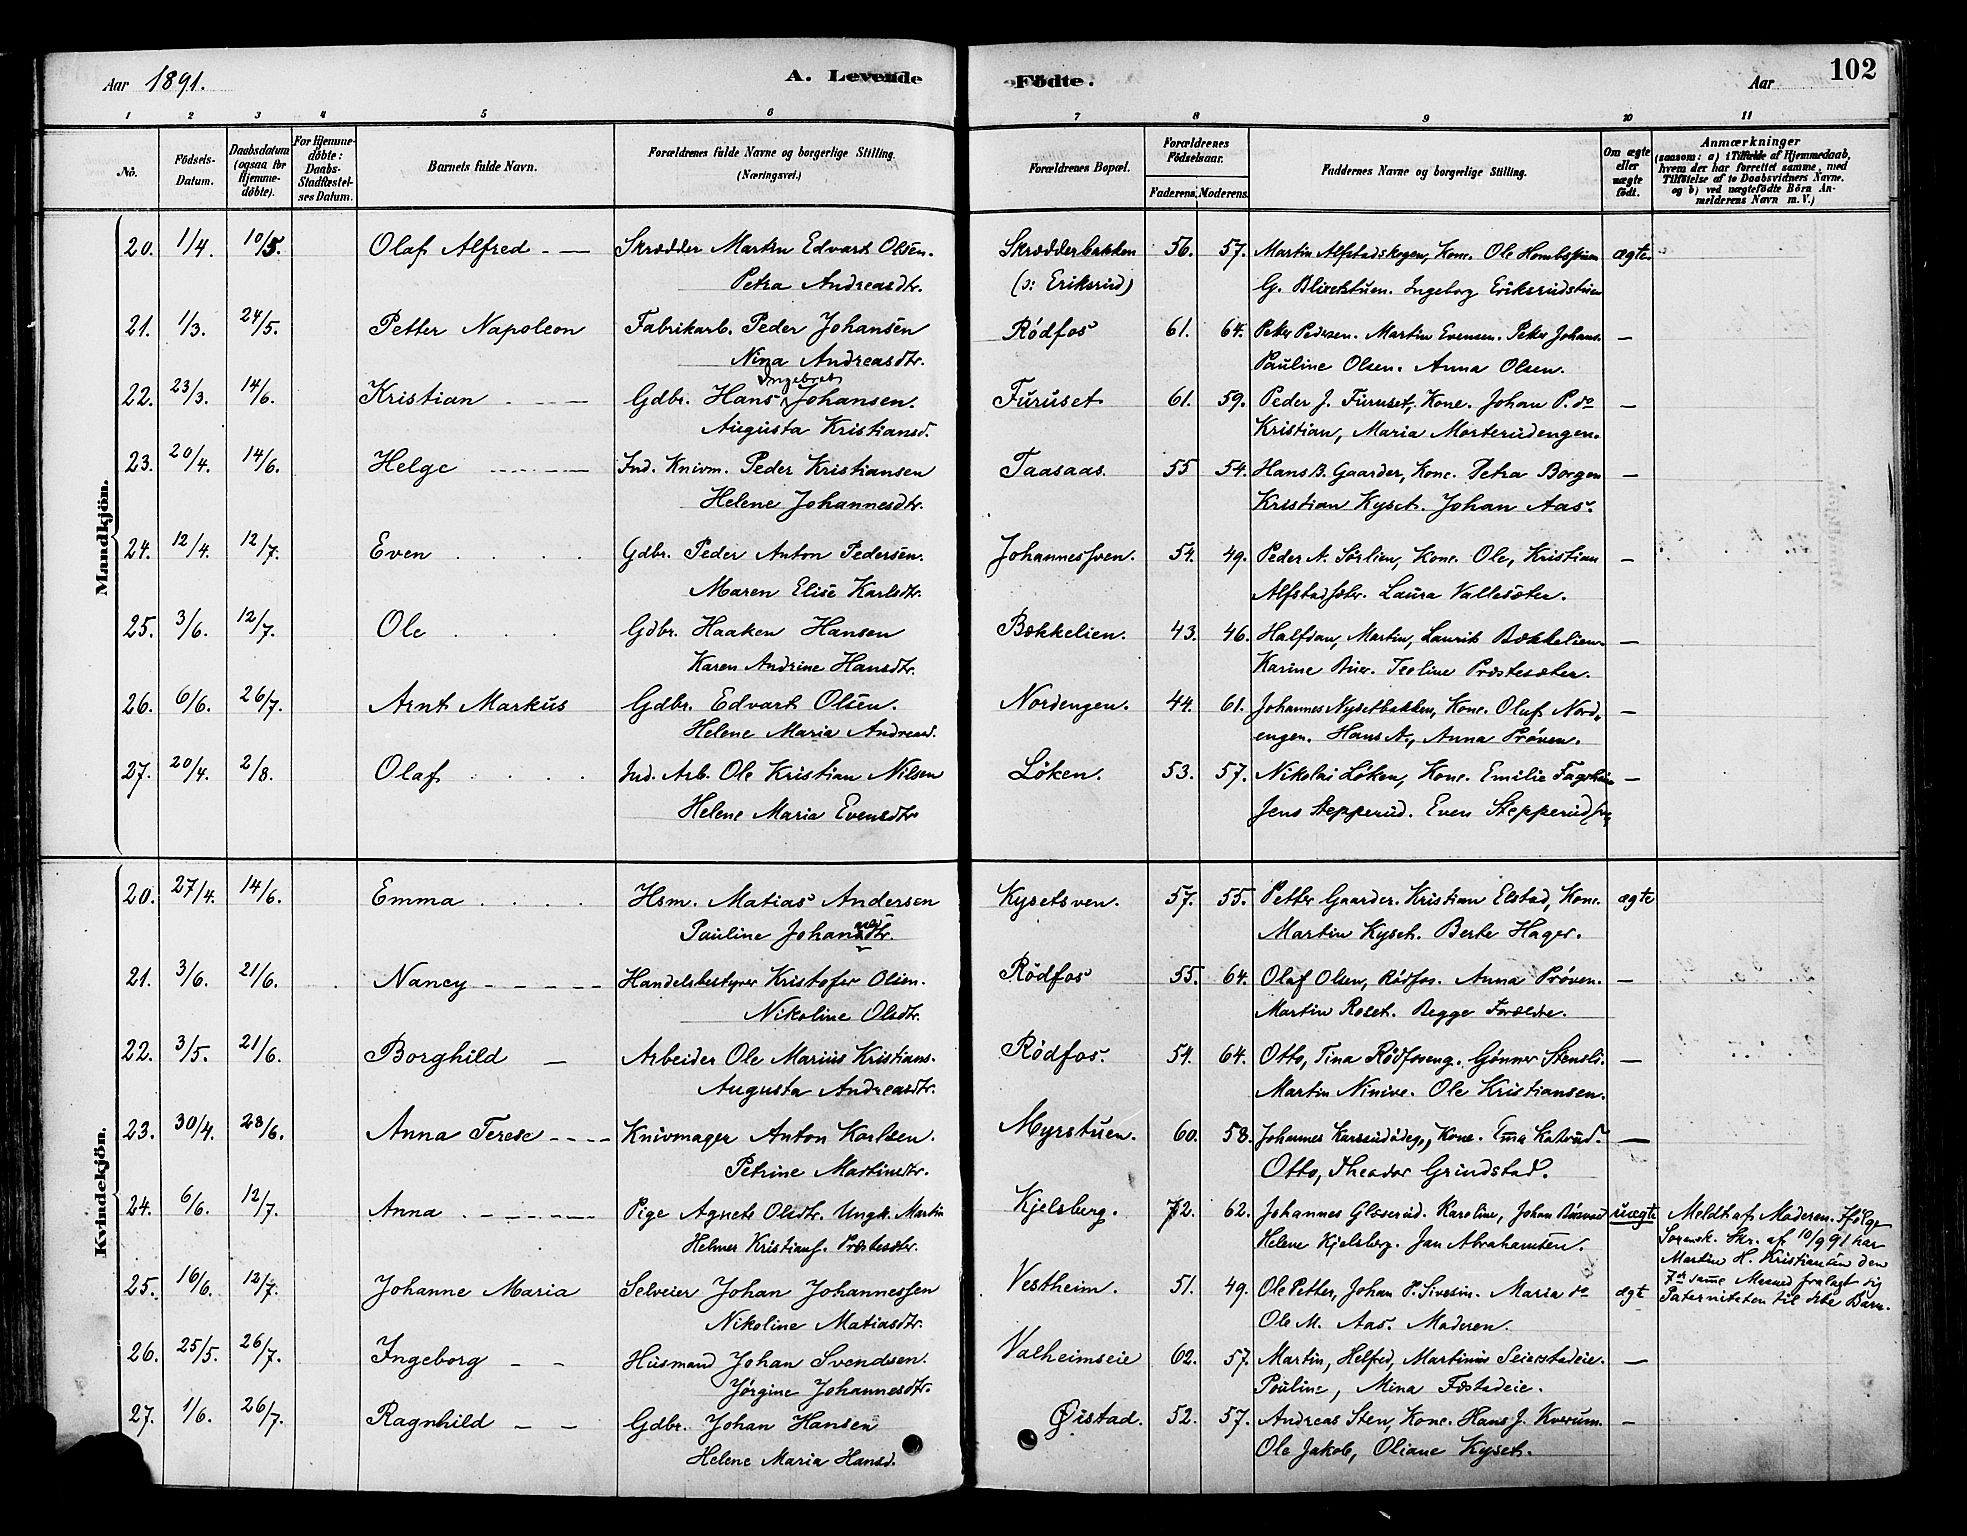 Aar 1891. A. Levende Födte. Aar 102
1 2 3 4 5 6 7 8 9 10 11
No. Födsels-Datum. Daabsdatum (ogsaa for Hjemmedöbte). For Hjemmedöbte: Daabs-Stadfæstelses Datum. Barnets fulde Navn. Forældrenes fulde Navne og borgerlige Stilling. (Næringsvei.) Forældrenes Bopæl. Forældrenes Födselsaar. Faderens. Moderens. Faddernes Navne og borgerlige Stilling. Om ægte eller uægte födt. Anmærkninger (saasom: a) i Tilfælde af Hjemmedaab, hvem der har forrettet samme, med Tilföielse af to Daabsvidners Navne, og b) ved uægtefödte Börn Anmelderens Navn m. V.)
Mandkjön.
20. 1/4. 10/5. Olaf Alfred Skrædder Martin Edvart Olsen. Skrædderbakken 56. 57. Martin Alfstadskogen, Kone. Ole Hombstuen ægte
Petra Andreasdtr. (ɔ: Eriksrud) G. Blixetstuen. Ingeborg Eriksrudstuen
21. 1/3. 24/5. Petter Napoleon Fabrikarb. Peder Johansen Rödfos 61. 64. Peter Pedersen. Martin Evensen. Peter Johans. —
Nina Andreasdtr. Pauline Olsen. Anna Olsen.
22. 23/3. 14/6. Kristian Gdbr. Hans Ingebret Johansen. Furuset 61. 59. Peder J. Furuset, Kone. Johan P. do —
Augusta Kristiansd. Kristian, Maria Morterudengen.
23. 20/4. 14/6. Helge Ind. Knivm. Peder Kristiansen Taasaas. 55 54. Hans B. Gaarder, Kone. Petra Borgen —
Helene Johannesdtr. Kristian Kyset. Johan Aas.
24. 12/4. 12/7. Even Gdbr. Peder Anton Pedersen. Johannessven. 54. 49. Peder A. Sørlien, Kone. Ole, Kristian —
Maren Elise Karlsdtr. Alfstadsæter. Laura Vallesæter.
25. 3/6. 12/7. Ole Gdbr. Haaken Hansen Bækkelien. 43. 46. Halfdan, Martin, Laurits Bækkelien. —
Karen Andrine Hansdtr. Karine Buer. Teoline Præstesæter.
26. 6/6. 26/7. Arnt Markus Gdbr. Edvart Olsen. Nordengen. 44. 61. Johannes Nysetbakken, Kone. Oluf Nord- —
Helene Maria Andreasd. engen. Hans A., Anna Prøven.
27. 20/4. 2/8. Olaf Ind. Arb. Ole Kristian Nilsen Løken. 53. 57. Nikolai Løken, Kone. Emilie —
Helene Maria Evensdtr. Jens Stepperud. Even
Kvindekjön.
20. 27/4. 14/6. Emma Hsm. Matias Andersen Kysetsven. 57. 55. Petter Gaarder. Kristian Elstad, Kone. ægte
Pauline Johannesdtr. Martin Kyset. Berte Hager.
21. 3/6. 21/6. Nancy Handelsbestyrer Kristofer Olsen. Rödfos 55. 64. Olaf Olsen, Rödfos. Anna Prøven. —
Nikoline Olsdtr. Martin Roset. Begge Forældre.
22. 3/5. 21/6. Borghild Arbeider Ole Marius Kristians. Rödfos. 54. 64. Otto, Tina Rödfoseng. Gunner Stensli. —
Augusta Andreasdtr. Martin Ninive. Ole Kristiansen.
23. 30/4. 28/6. Anna Terese Knivmager Anton Karlsen. Myrstuen. 60. 58. Johannes Kone. Katrud. —
Petrine Martinsdtr. Otto, Theodor Grindstad.
24. 6/6. 12/7. Anna Pige Agnete Olsdtr. Ungk. Martin Kjelsberg. 72. 62. Johannes Glæserud. Karoline, Johan uægte Meldt af Moderen. Ifølge
Helmer Kristians. Præstesæter. Helene Kjelsberg. Jan Abrahamsen. Sorensk. Skr. af 10/9 91 har
Martin H. Kristiansen den
25. 16/6. 12/7. Johanne Maria Selveier Johan Johannessen Vestheim. 51. 49. Ole Petter, Johan P. Sivesin. Maria do ægt 7de samme Maaned fralagt sig
Nikoline Matiasdtr. Ole M. Aas. Moderen. Paterniteten til dette Barn.
26. 25/5. 26/7. Ingeborg Husmand Johan Svendsen. Valheimseie 62. 57. Martin, Helfred, Martinus Seierstadeie. —
Jørgine Johannesdtr. Pouline, Mina Fæstadeie.
27. 1/6. 26/7. Ragnhild Gdbr. Johan Hansen Øistad. 52. 57. Andreas Sten, Kone. Hans J. Kverum. —
Helene Maria Hansd. Ole Jakob, Oliane Kyset.